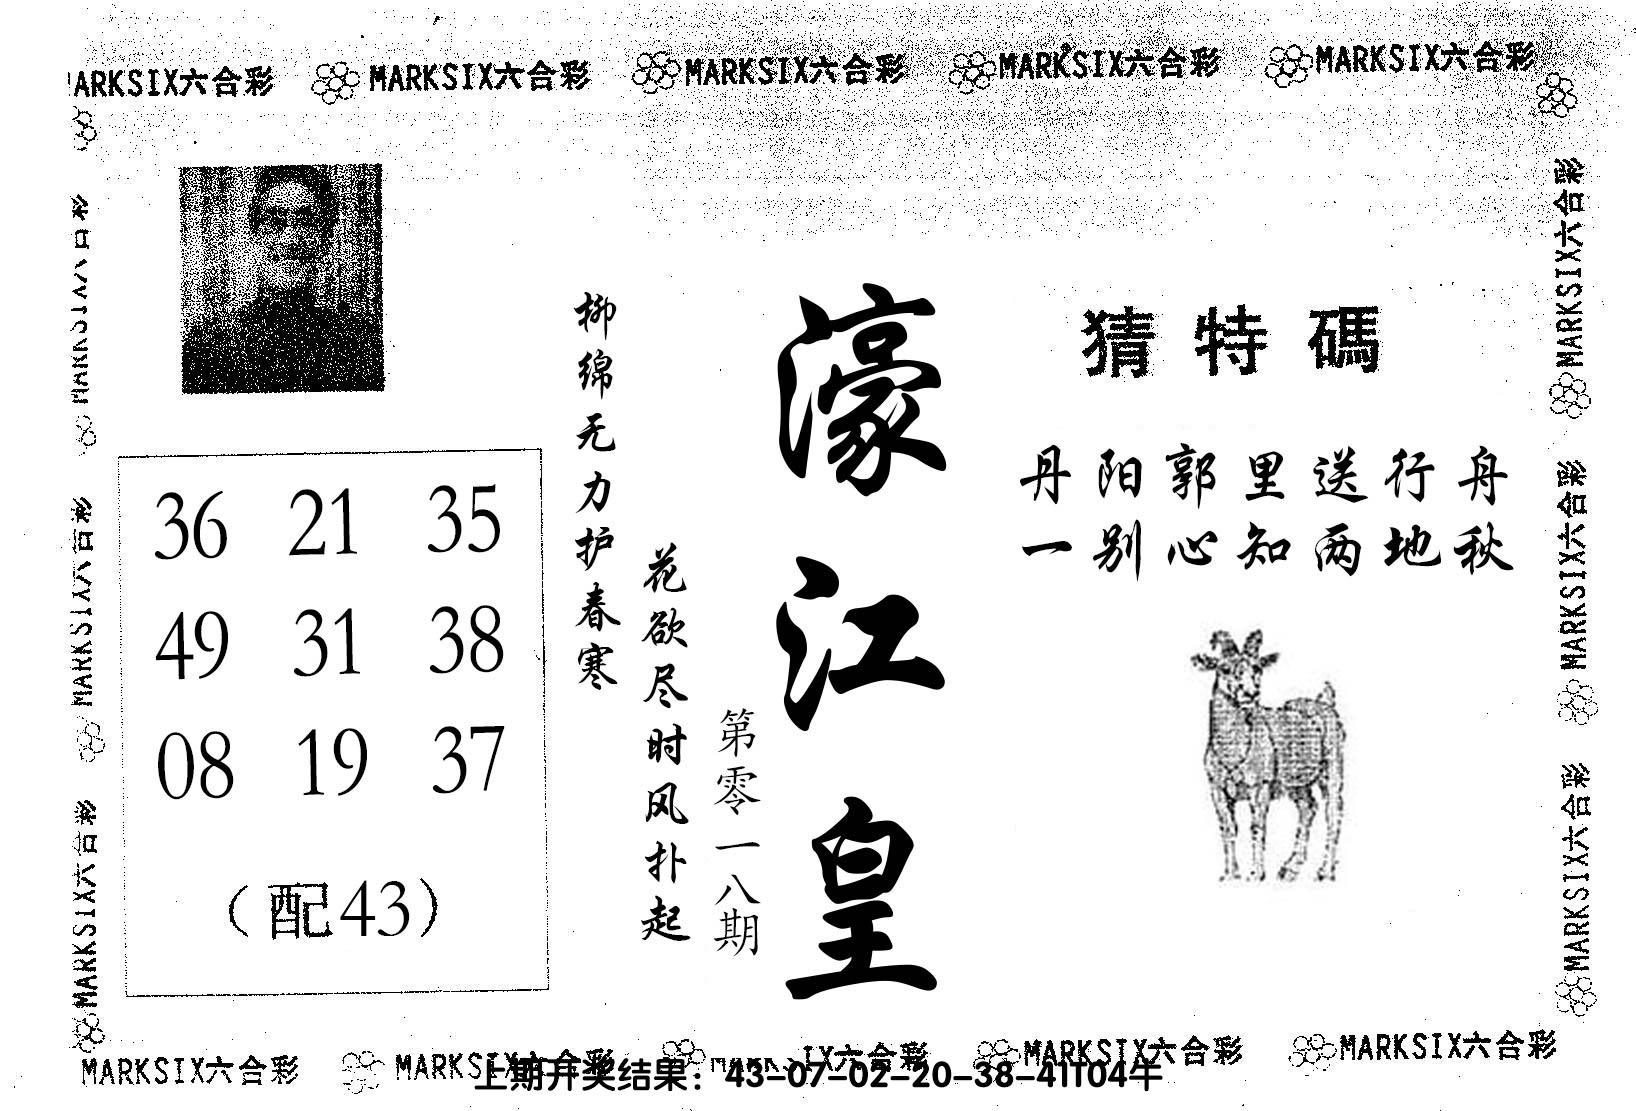 MARKSIX六合彩 MARKSIX六合彩 MARKSIX六合彩 MARKSIX六合彩 MARKSIX六合彩
猜特碼
丹阳郭里送行舟
一别心知两地秋
濠江皇
第零一八期
花欲尽时风扑起
柳绵无力护春寒
36 21 35
49 31 38
08 19 37
（配43）
MARKSIX六合彩
MARKSIX六合彩
MARKSIX六合彩
MARKSIX六合彩
MARKSIX六合彩
MARKSIX六合彩
MARKSIX六合彩 MARKSIX六合彩 MARKSIX六合彩 MARKSIX六合彩
上期开奖结果：43-07-02-20-38-41T04午